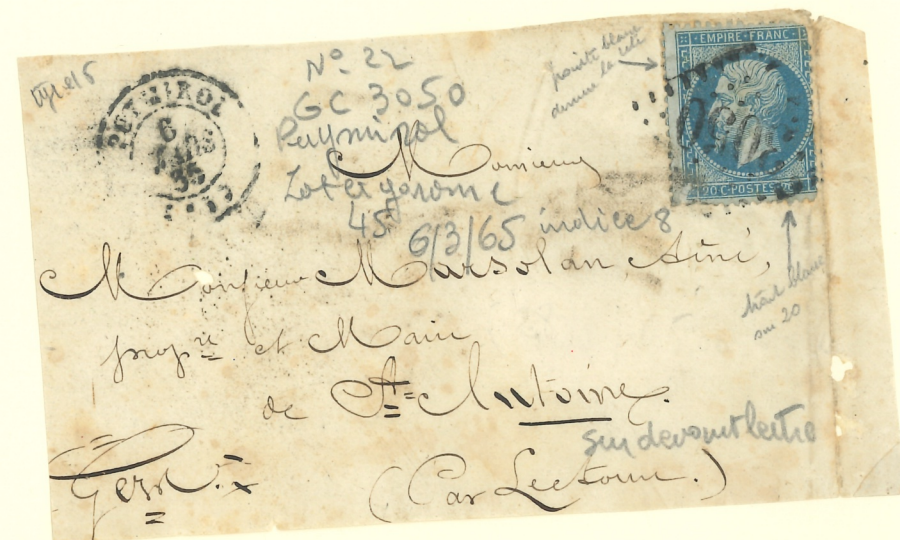 type 15
PUYMIROL
6
MARS
65
N° 22
GC 3050
Puymirol
Lot et garonne
45
6/3/65 indice 8
pointe blanche
EMPIRE FRANC
20 C·POSTES·20
trait blanc
sur 20
Monsieur
Monsieur Marsolan Ainé,
propre et Maire
de St Antoine.
sur devant lettre
Gers.
(Par Lectoure.)